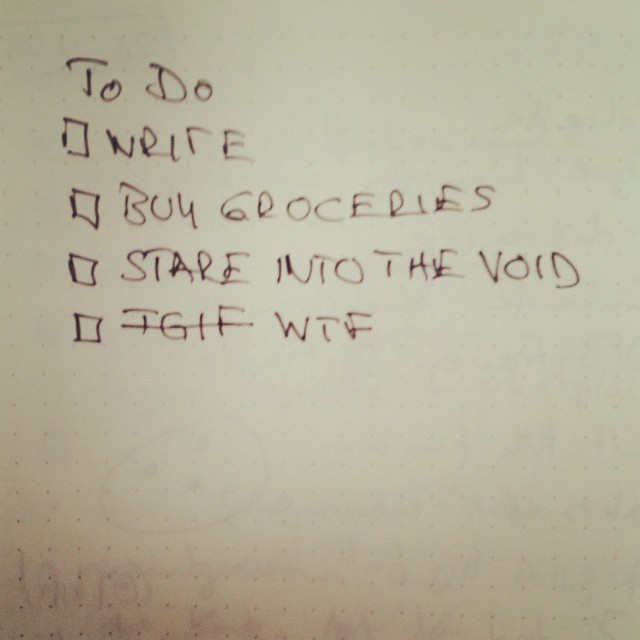 To Do
WRITE
BUY GROCERIES
STARE INTO THE VOID
TGIF WTF